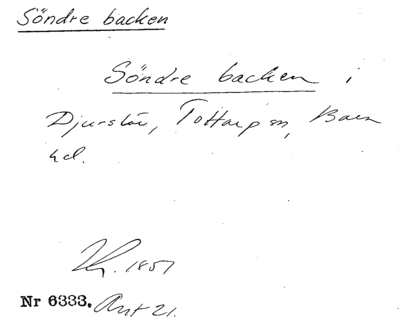 Söndre backen
Söndre backen i
Djurslöv, Tottarps sn, Bara
hd.
1851
Nr 6333. Ant 21.